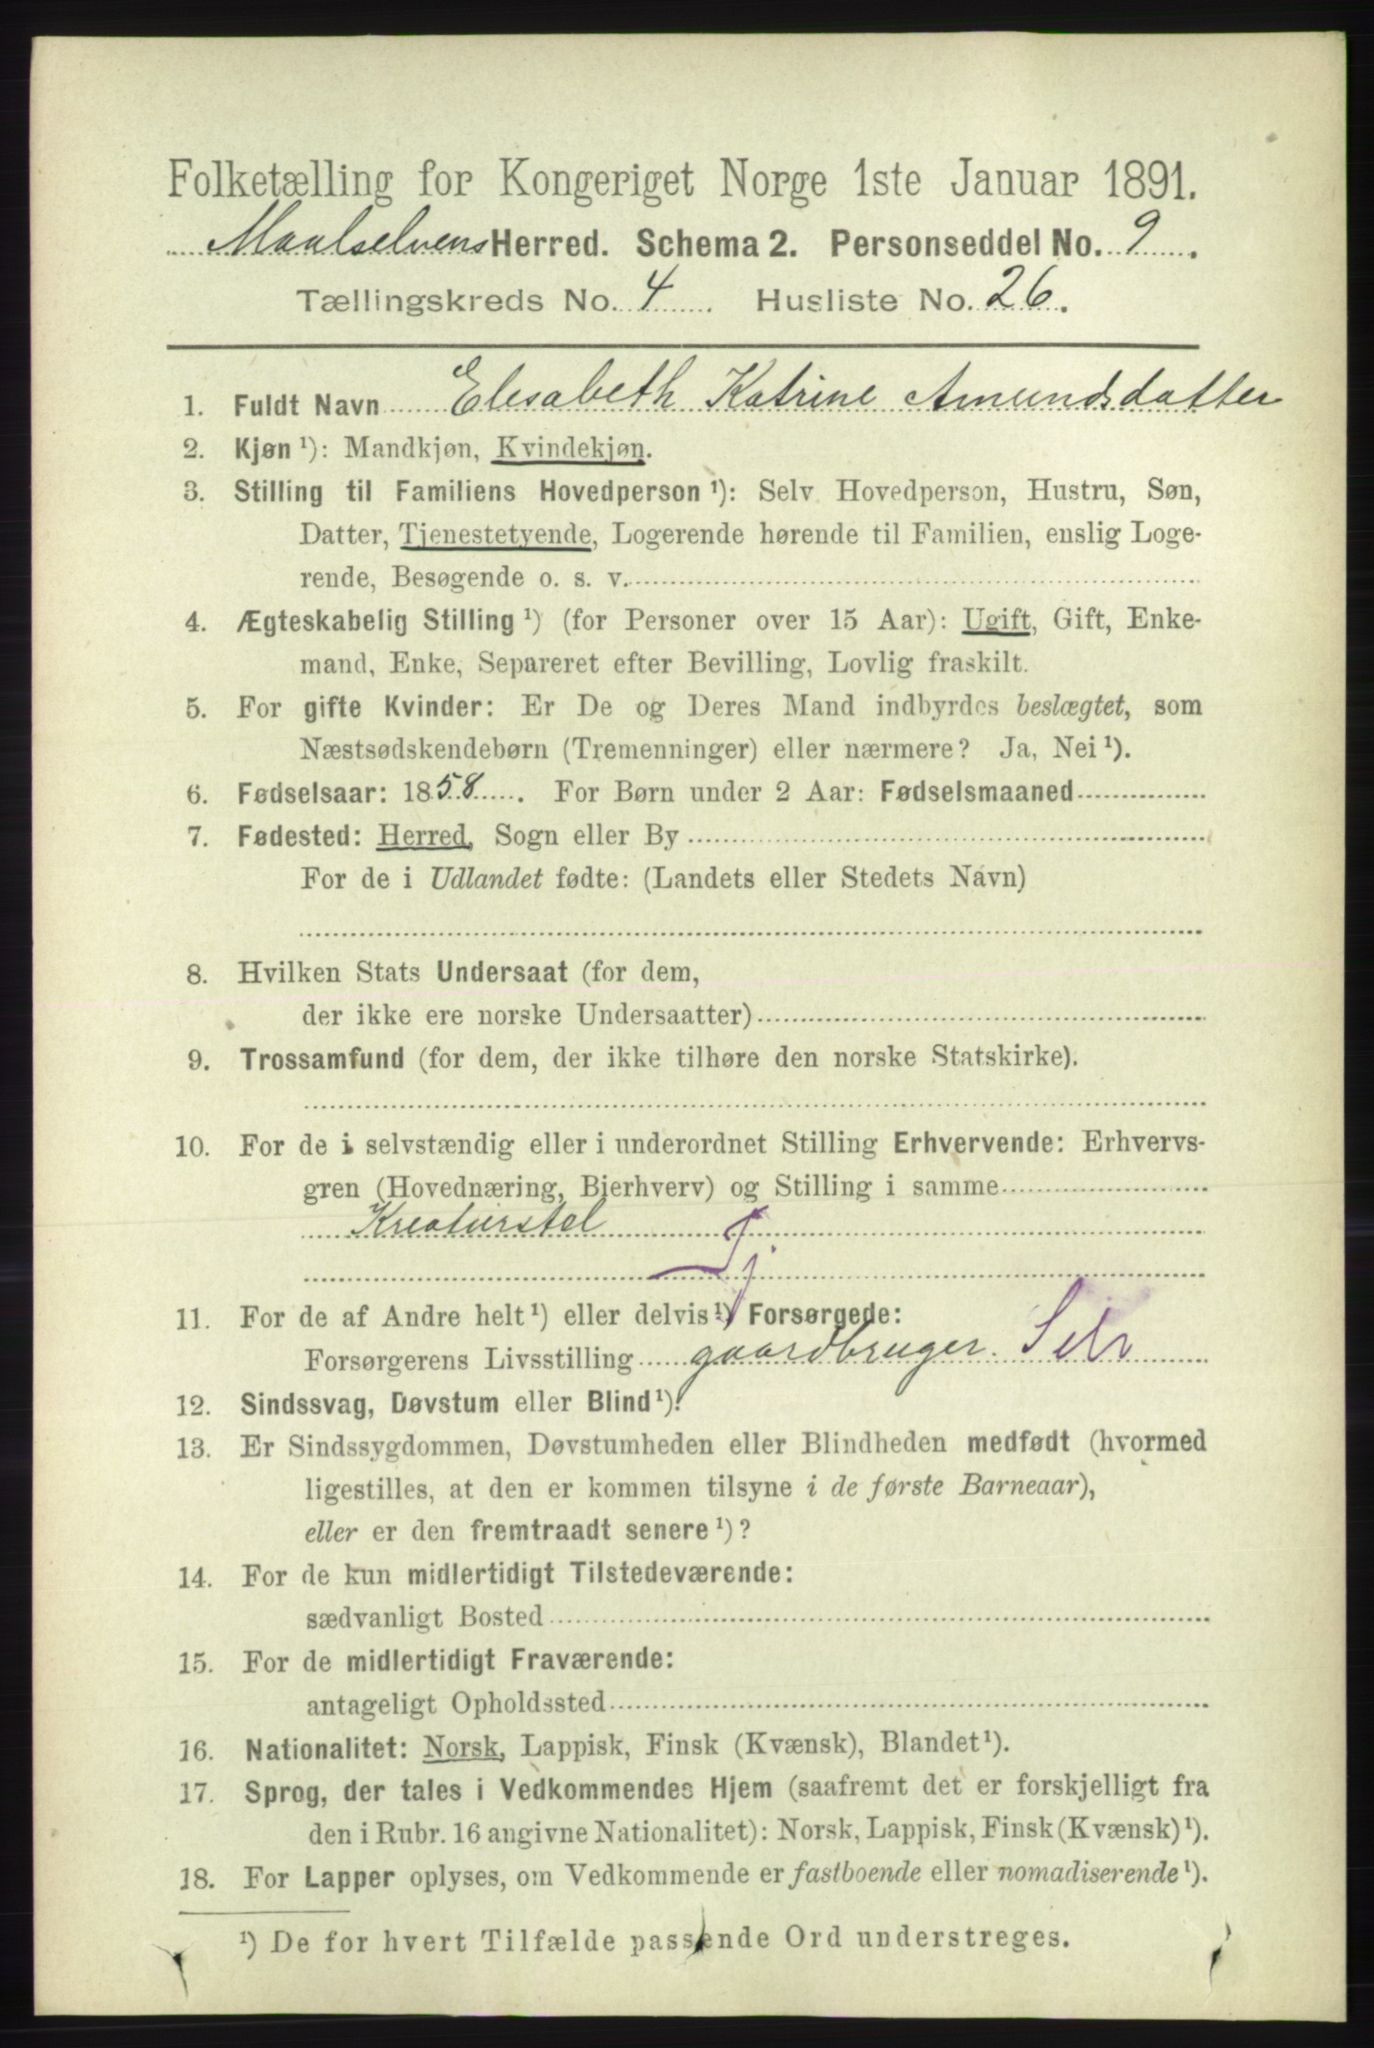 Folketælling for Kongeriget Norge 1ste Januar 1891.
Maalselvens Herred. Schema 2. Personseddel No. 9.
Tællingskreds No. 4. Husliste No. 26.
1. Fuldt Navn Elesabeth Katrine Amundsdatter
2. Kjøn ¹): Mandkjøn, Kvindekjøn.
3. Stilling til Familiens Hovedperson ¹): Selv Hovedperson, Hustru, Søn,
Datter, Tjenestetyende, Logerende hørende til Familien, enslig Loge-
rende, Besøgende o. s. v.
4. Ægteskabelig Stilling ¹) (for Personer over 15 Aar): Ugift, Gift, Enke-
mand, Enke, Separeret efter Bevilling, Lovlig fraskilt.
5. For gifte Kvinder: Er De og Deres Mand indbyrdes beslægtet, som
Næstsødskendebørn (Tremenninger) eller nærmere? Ja, Nei ¹).
6. Fødselsaar: 1858. For Børn under 2 Aar: Fødselsmaaned
7. Fødested: Herred, Sogn eller By
For de i Udlandet fødte: (Landets eller Stedets Navn)
8. Hvilken Stats Undersaat (for dem,
der ikke ere norske Undersaatter)
9. Trossamfund (for dem, der ikke tilhøre den norske Statskirke).
10. For de i selvstændig eller i underordnet Stilling Erhvervende: Erhvervs-
gren (Hovednæring, Bierhverv) og Stilling i samme
Kreaturstel
Tj
11. For de af Andre helt ¹) eller delvis ¹) Forsørgede:
Forsørgerens Livsstilling gaardbruger. Selv
12. Sindssvag, Døvstum eller Blind ¹).
13. Er Sindssygdommen, Døvstumheden eller Blindheden medfødt (hvormed
ligestilles, at den er kommen tilsyne i de første Barneaar),
eller er den fremtraadt senere ¹)?
14. For de kun midlertidigt Tilstedeværende:
sædvanligt Bosted
15. For de midlertidigt Fraværende:
antageligt Opholdssted
16. Nationalitet: Norsk, Lappisk, Finsk (Kvænsk), Blandet ¹).
17. Sprog, der tales i Vedkommendes Hjem (saafremt det er forskjelligt fra
den i Rubr. 16 angivne Nationalitet): Norsk, Lappisk, Finsk (Kvænsk) ¹).
18. For Lapper oplyses, om Vedkommende er fastboende eller nomadiserende ¹).
¹) De for hvert Tilfælde passende Ord understreges.